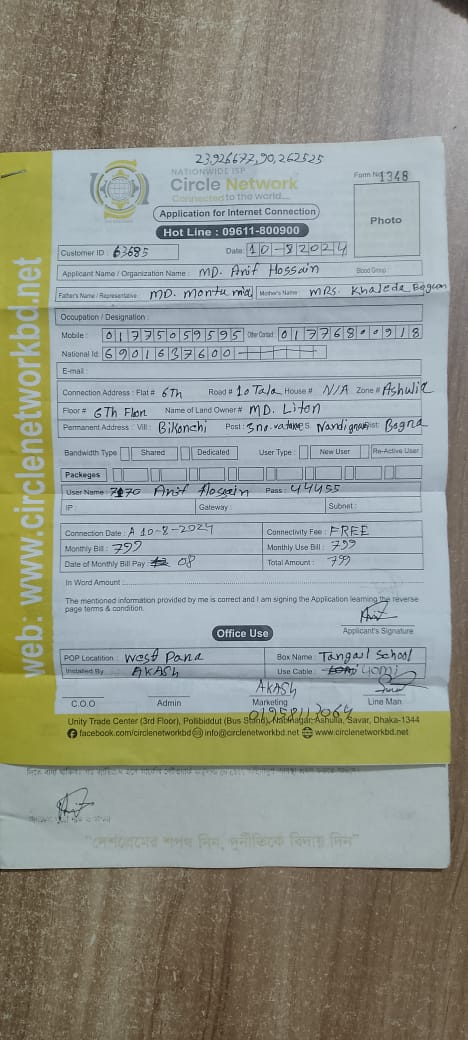 23,926677,90,262525
NATIONWIDE ISP
Circle Network
Connected to the world....
Form No 1348
Application for Internet Connection
Photo
Hot Line : 09611-800900
Customer ID : 63685
Date: 10-82024
Applicant Name / Organization Name : MD. Arif Hossain Blood Group :
Father's Name / Representative MD. montu mia Mother's Name : MRS. Khaleda Begum
Occupation / Designation :
Mobile : 01775059595 Other Contact : 01776800918
National Id: 6901637600
E-mail :
Connection Address : Flat # 6Th Road # 10 Tala House # N/A Zone # Ashulia
Floor # 6Th Floor Name of Land Owner # MD. Liton
Permanent Address : Vill : Bikonchi Post : Nandigram Dist: Bogra
Bandwidth Type Shared Dedicated User Type : New User Re-Active User
Packeges
User Name : Arif Hossain Pass : 44455
IP : Gateway : Subnet :
Connection Date : A 10-8-2024 Connectivity Fee : FREE
Monthly Bill : 799 Monthly Use Bill : 799
Date of Monthly Bill Pay 08 Total Amount : 799
In Word Amount
The mentioned information provided by me is correct and I am signing the Application learning the reverse
page terms & condition.
Applicant's Signature
Office Use
POP Locatition : West Para Box Name : Tangail School
Installed By AKASH Use Cable :
AKASH
C.O.O Admin Marketing Line Man
01958112064
Unity Trade Center (3rd Floor), Pollibiddut (Bus Stand), Nabinagar, Ashulia, Savar, Dhaka-1344
facebook.com/circlenetworkbd info@circlenetworkbd.net www.circlenetworkbd.net
web: www.circlenetworkbd.net
"দেশপ্রেমের শপথ নিন, দুর্নীতিকে বিদায় দিন"